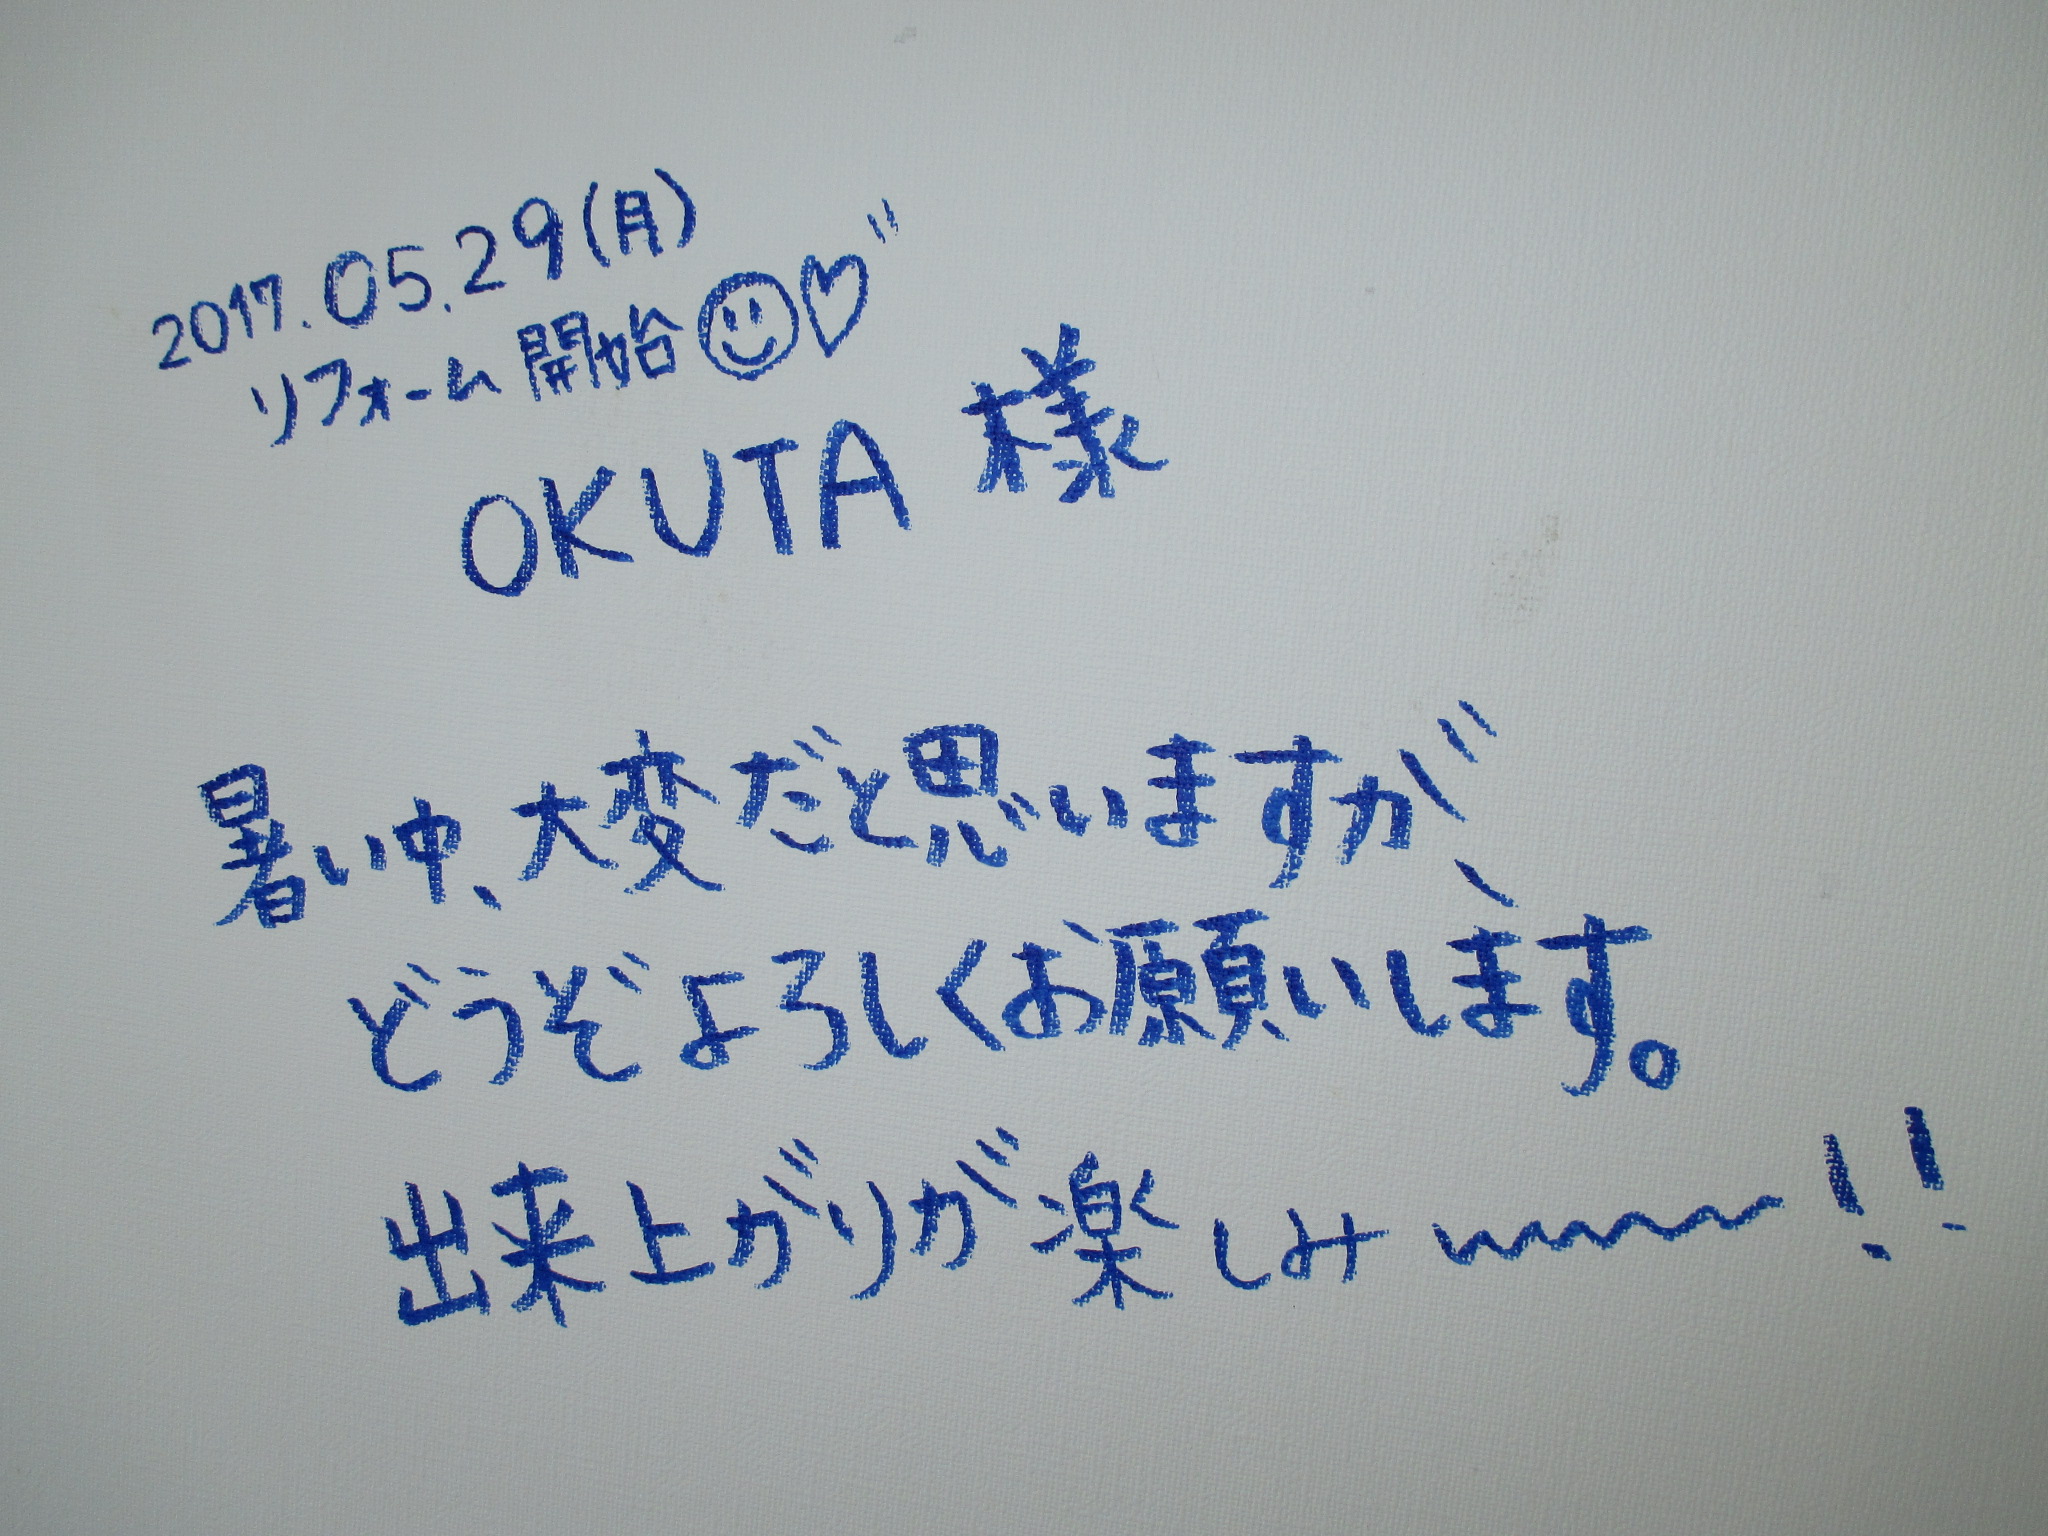 2017.05.29(月)
リフォーム開始☺♡"
OKUTA 様
暑い中、大変だと思いますが、
どうぞよろしくお願いします。
出来上がりが楽しみ〜〜〜!!